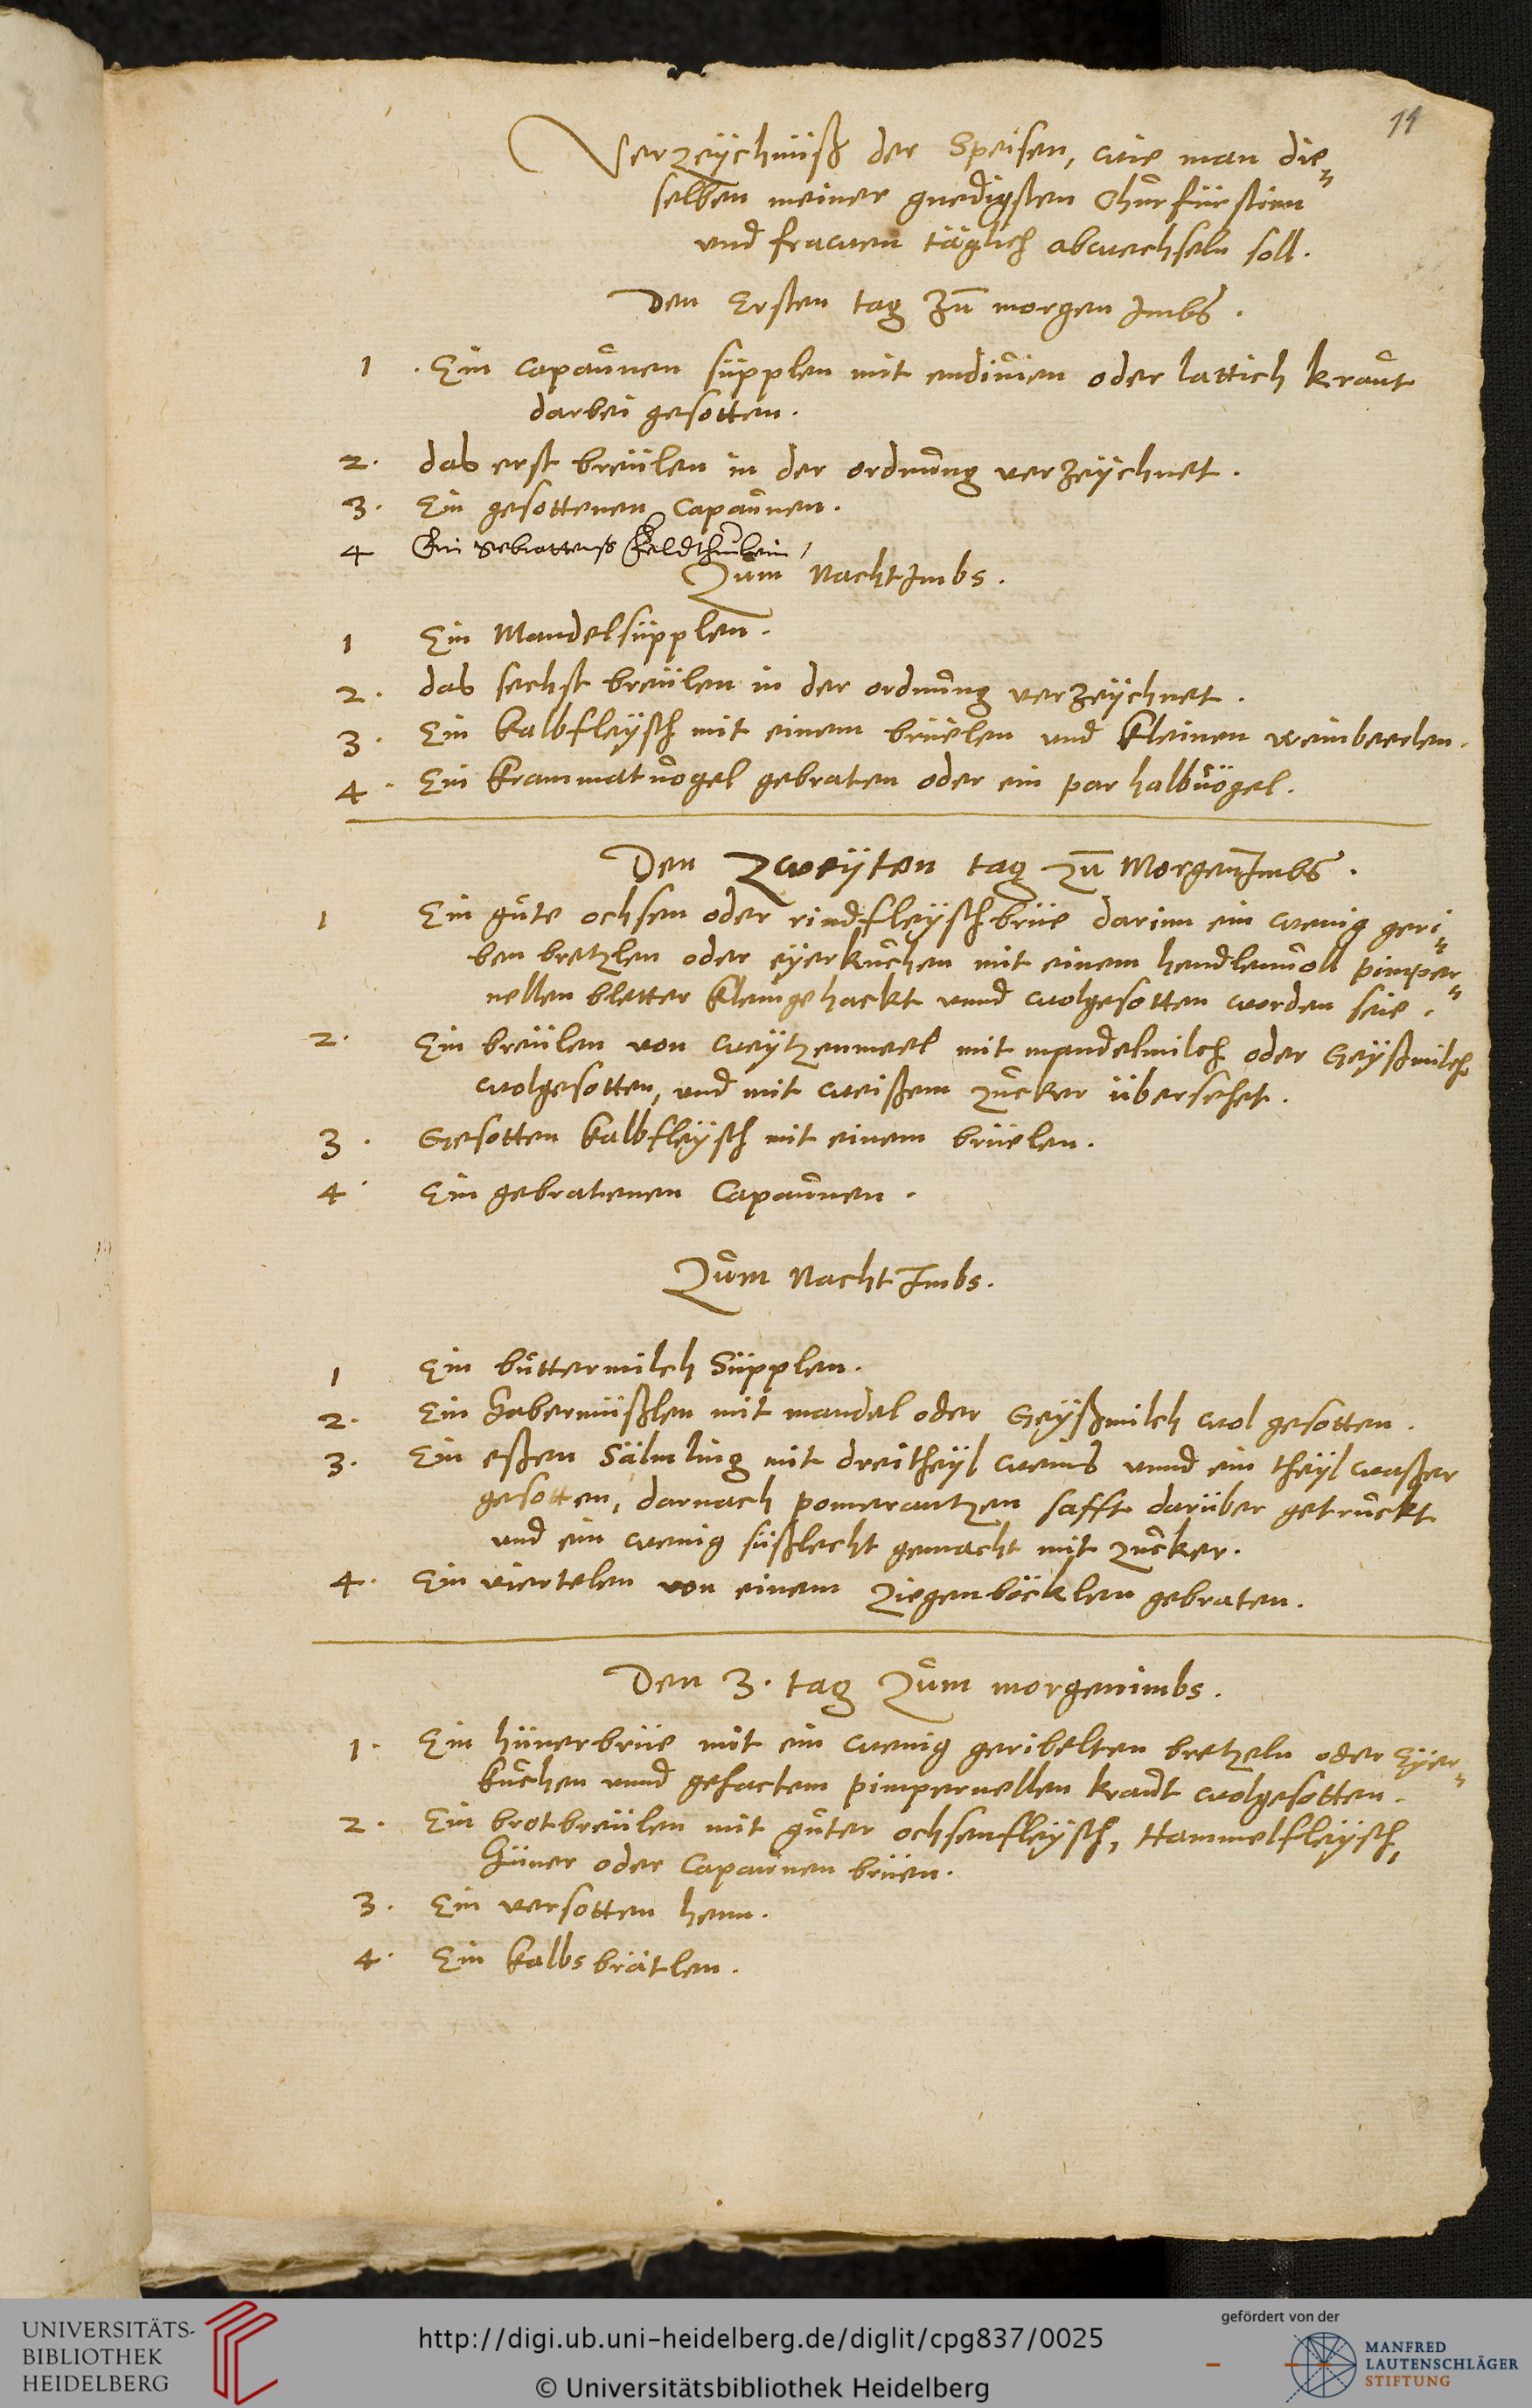 11
Verzeÿchnüß der Speisen, wie man die„
selben meiner gnedigsten Churfürstinn
vnd frawen täglich abwechseln soll.
Den Ersten tag zū morgen Imbs.
1 . Ein capaunen süpplen mit endiuien oder lattich kraut
darbei gesotten.
2. das erst breülen in der ordnung verzeÿchnet.
3. Ein gesottenen Capaunen.
4 Ein gebrattenß
Zum NachtImbs.
1 Ein Mandelsüpplen.
2. das sechst breülen in der ordnung verzeÿchnet.
3. Ein kalbfleÿsch mit einem brüelen vnd kleinen weinbeerlen.
4. Ein krammatuogel gebraten oder ein par halbuögel.
Den Zweÿten tag zū MorgenImbs.
1 Ein gute ochsen oder rindfleÿschbrüe darinn ein wenig geri„
ben bretzlen oder eÿerkuchen mit einem hendlenuoll pimper„
nellen bletter kleingehackt vnnd wolgesotten worden seie.
2. Ein breülen von weÿtzenmeel mit mandelmilch oder Geÿßmilch
wolgesotten, vnd mit weißem zucker übersehet.
3. Gesotten kalbfleÿsch mit einem brüelen.
4. Ein gebratenen Capaunen.
Zum NachtImbs.
1 Ein buttermilch Süpplen.
2. Ein habermüßlen mit mandel oder Geÿßmilch wol gesotten.
3. Ein eßen Sälmling mit dreitheÿl weins vnnd ein theÿl waßer
gesotten, darnach pomerantzen safft darüber getruckt
vnd ein wenig süßlecht gemacht mit zucker.
4. Ein viertelen von einem Ziegenböcklen gebraten.
Den 3. tag Zum morgenimbs.
1. Ein hünerbrüe mit ein wenig geribelten bretzeln oder Eÿer„
kuchen vnnd gehactem pimpernellen kraut wolgesotten.
2. Ein brotbreülen mit guter ochsenfleÿsch, Hammelfleÿsch,
Hüner oder Capaunen brüen.
3. Ein versotten henn.
4. Ein kalbsbrätlen.
UNIVERSITÄTS-
BIBLIOTHEK
HEIDELBERG
http://digi.ub.uni-heidelberg.de/diglit/cpg837/0025
© Universitätsbibliothek Heidelberg
gefördert von der
MANFRED
LAUTENSCHLÄGER
STIFTUNG